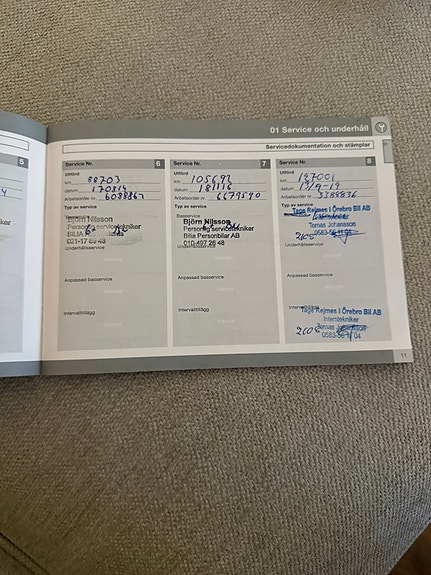 01 Service och underhåll
Servicedokumentation och stämplar
5
Service Nr. 6
Utförd
km 88703
datum 170814
Arbetsorder nr 6088867
Typ av service
Basservice
Björn Nilsson
Personlig servicetekniker
BILIA
021-17 69 48
Underhållsservice
Stämpel
Anpassad basservice
Stämpel
Intervalltillägg
Stämpel
Service Nr. 7
Utförd
km 105693
datum 181116
Arbetsorder nr 6679590
Typ av service
Björn Nilsson
Personlig servicetekniker
Bilia Personbilar AB
010-497 26 48
Underhållsservice
Stämpel
Anpassad basservice
Stämpel
Intervalltillägg
Stämpel
Service Nr. 8
Utförd
km 127001
datum 13/9-19
Arbetsorder nr 3388836
Typ av service
Tage Rejmes i Örebro Bil AB
Tomas Johansson
0583-56 11 04
Underhållsservice
Stämpel
Anpassad basservice
Stämpel
Intervalltillägg
Tage Rejmes i Örebro Bil AB
Interntekniker
Tomas Johansson
0583-56 11 04
11